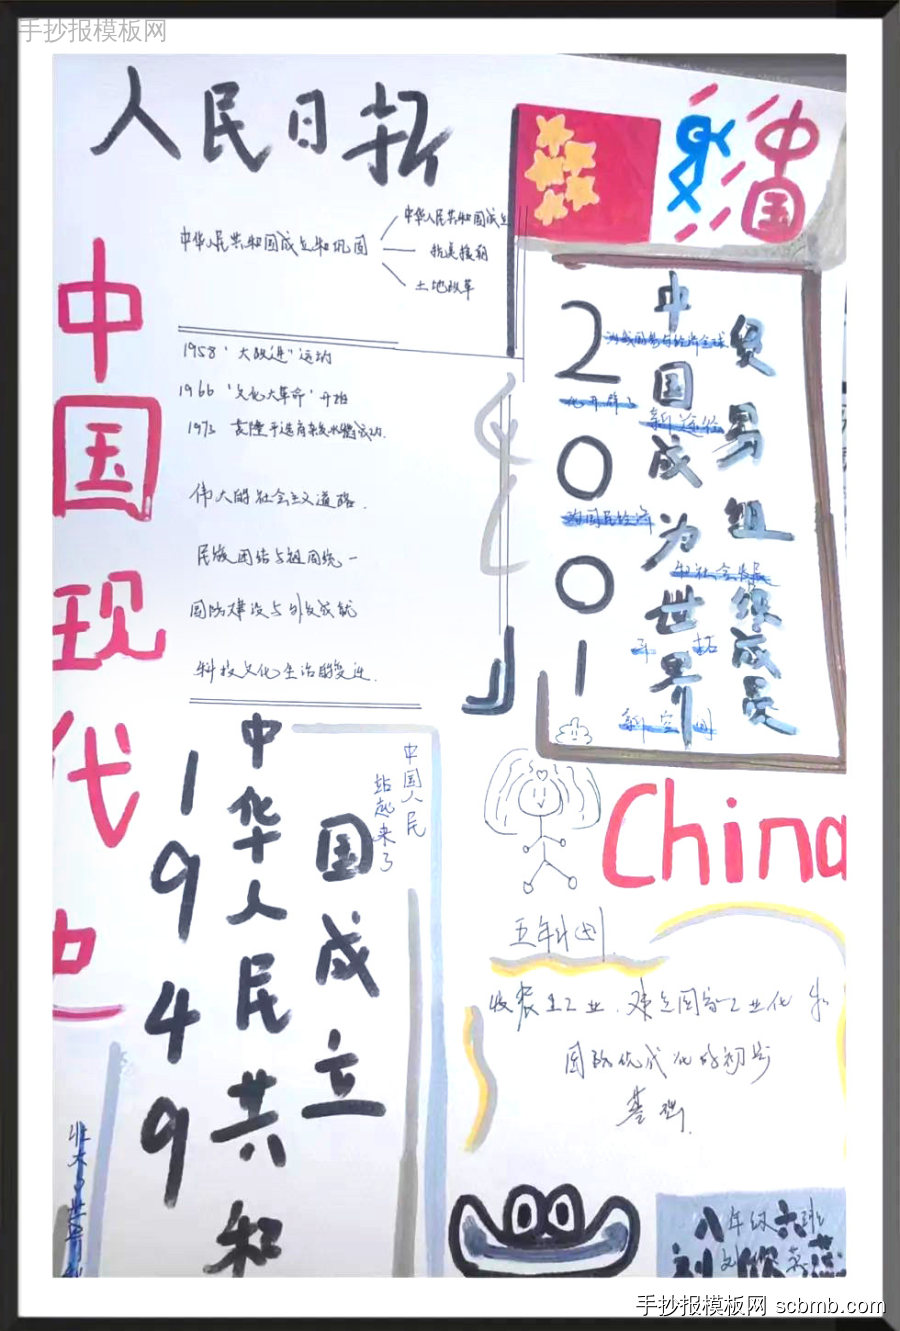 手抄报模板网
人民日报
中国
中华人民共和国成立和巩固
中华人民共和国成立
抗美援朝
土地改革
1958“大跃进”运动
1966“文化大革命”开始
1973 袁隆平选育杂交水稻成功.
伟大的社会主义道路.
民族团结与祖国统一
国防建设与外交成就
科技文化生活的变迁.
中国现代
2001
中国成为世界
贸易组织成员
为我国参与经济全球
化开辟了
新途径
为国民经济
和社会发展
开拓
新空间
1949
中华人民共和
国成立
中国人民
站起来了
China
五年计划
收农土工业.建立国家工业化和
国防现代化的初步
基础.
八年级六班
手抄报模板网 scbmb.com